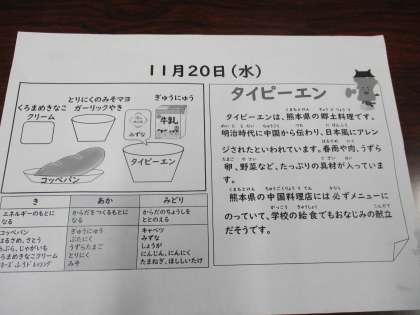 11月20日(水)
くろまめきなこ
クリーム
とりにくのみそマヨ
ガーリックやき
ぎゅうにゅう
牛乳
みずな
タイピーエン
コッペパン
き
あか
みどり
エネルギーのもとに
なる
からだをつくるもとに
なる
からだのちょうしを
ととのえる
コッペパン
はるさめ、さとう
あぶら、じゃがいも
くろまめきなこ
クリーム
ぎゅうにゅう
ぶたにく
うずらたまご
とりにく
みそ
キャベツ
みずな
しょうが
にんじん、にんにく
たまねぎ、ほししいたけ
タイピーエン
タイピーエンは、熊本県の郷土料理です。
明治時代に中国から伝わり、日本風にアレン
ジされたといわれています。春雨や肉、うずら
卵、野菜など、たっぷりの具材が入っていま
す。
熊本県の中国料理店には必ずメニューに
のっていて、学校の給食でもおなじみの献立
だそうです。